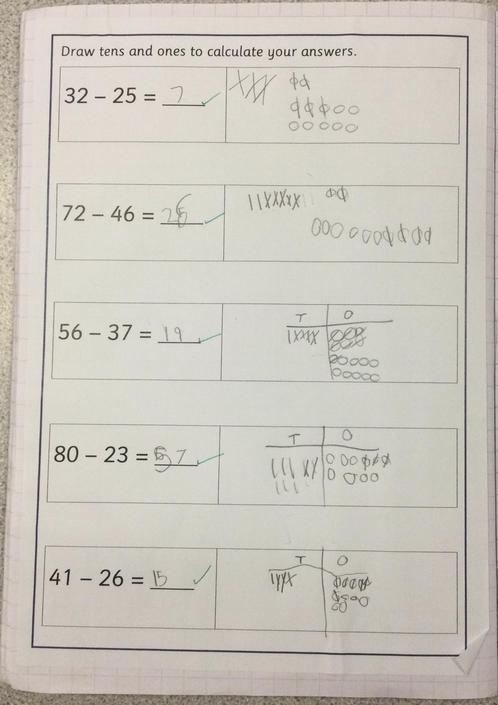 Draw tens and ones to calculate your answers.
32 – 25 = 7
72 – 46 = 26
T O
56 – 37 = 19
T O
80 – 23 = 57
T O
41 – 26 = 15